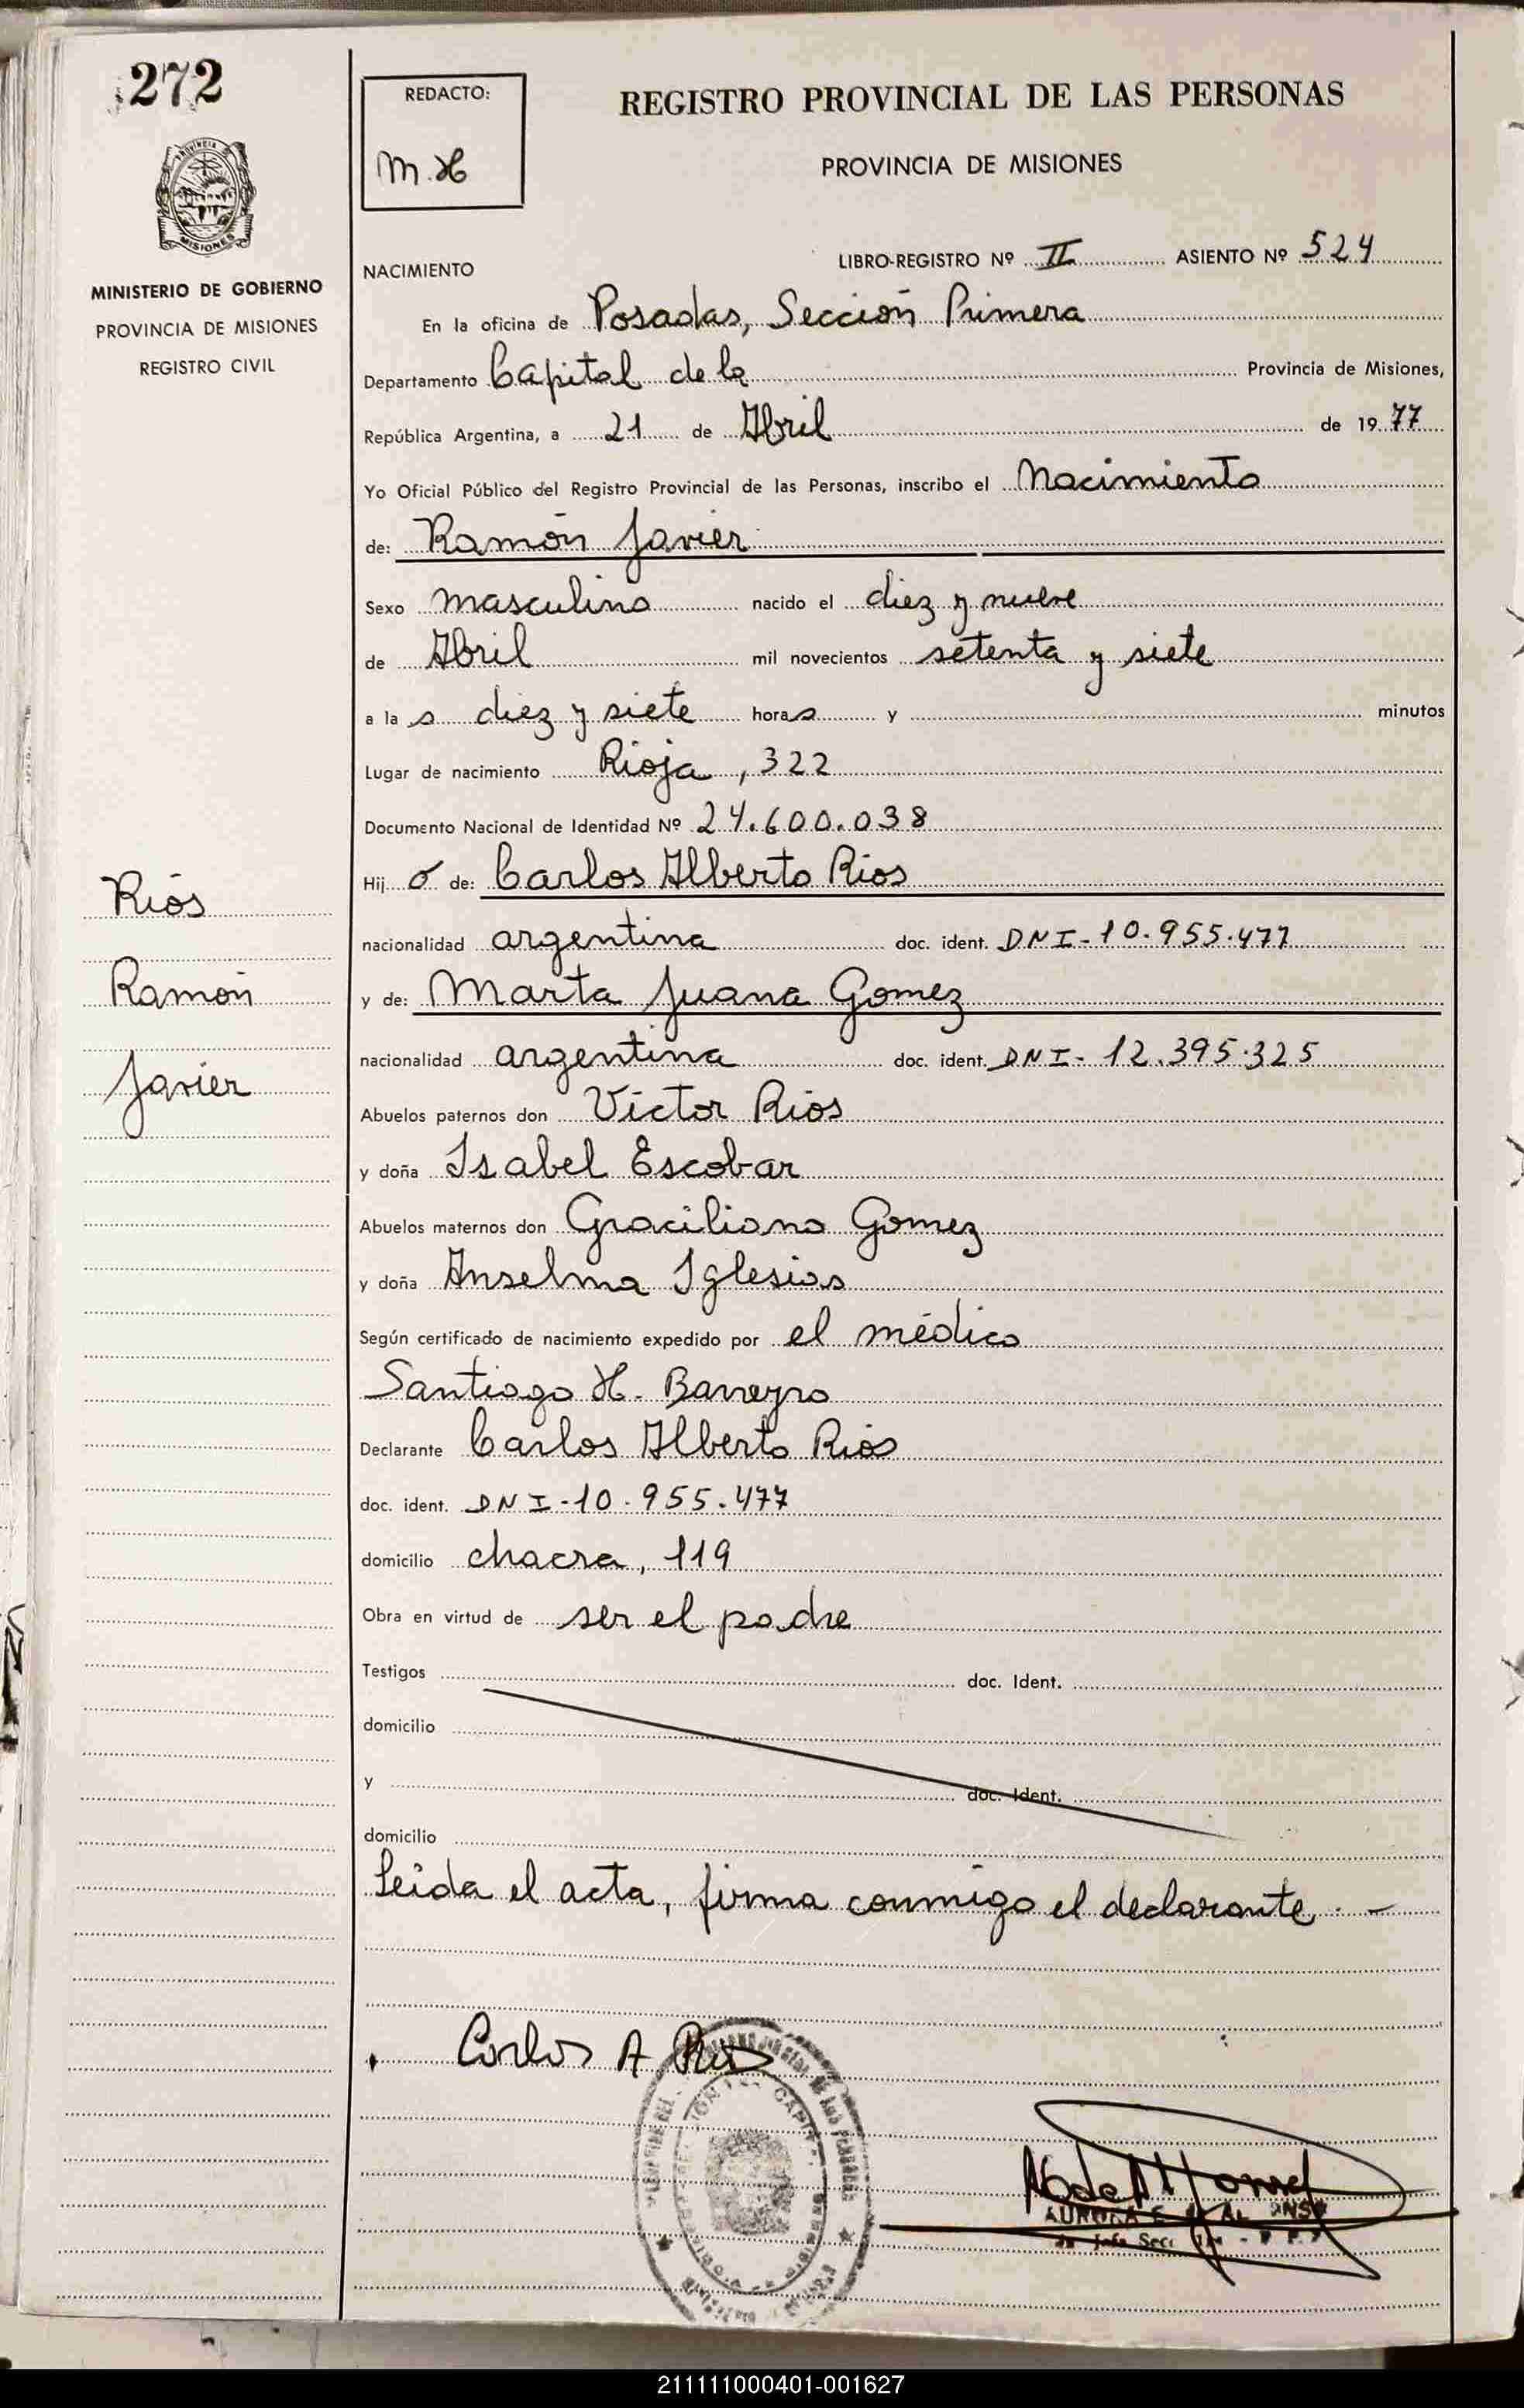 272
PROVINCIA DE
MISIONES
MINISTERIO DE GOBIERNO
PROVINCIA DE MISIONES
REGISTRO CIVIL
Rios
Ramón
Javier
REDACTO:
M.H
REGISTRO PROVINCIAL DE LAS PERSONAS
PROVINCIA DE MISIONES
LIBRO-REGISTRO Nº II ASIENTO Nº 524
NACIMIENTO
En la oficina de Posadas, Sección Primera
Departamento Capital de la Provincia de Misiones,
República Argentina, a 21 de Abril de 1977
Yo Oficial Público del Registro Provincial de las Personas, inscribo el Nacimiento
de: Ramón Javier
Sexo masculino nacido el diez y nueve
de Abril mil novecientos setenta y siete
a las diez y siete horas y minutos
Lugar de nacimiento Rioja, 322
Documento Nacional de Identidad Nº 24.600.038
Hijo de: Carlos Alberto Rios
nacionalidad argentina doc. ident. DNI-10.955.477
y de: Marta Juana Gomez
nacionalidad argentina doc. ident. DNI-12.395.325
Abuelos paternos don Victor Rios
y doña Isabel Escobar
Abuelos maternos don Graciliano Gomez
y doña Anselma Iglesias
Según certificado de nacimiento expedido por el médico
Santiago H. Barreyro
Declarante Carlos Alberto Rios
doc. ident. DNI-10.955.477
domicilio chacra, 119
Obra en virtud de ser el padre
Testigos doc. Ident.
domicilio
y doc. Ident.
domicilio
Leida el acta, firma conmigo el declarante.-
Carlos A Rios
AURORA
211111000401-001627